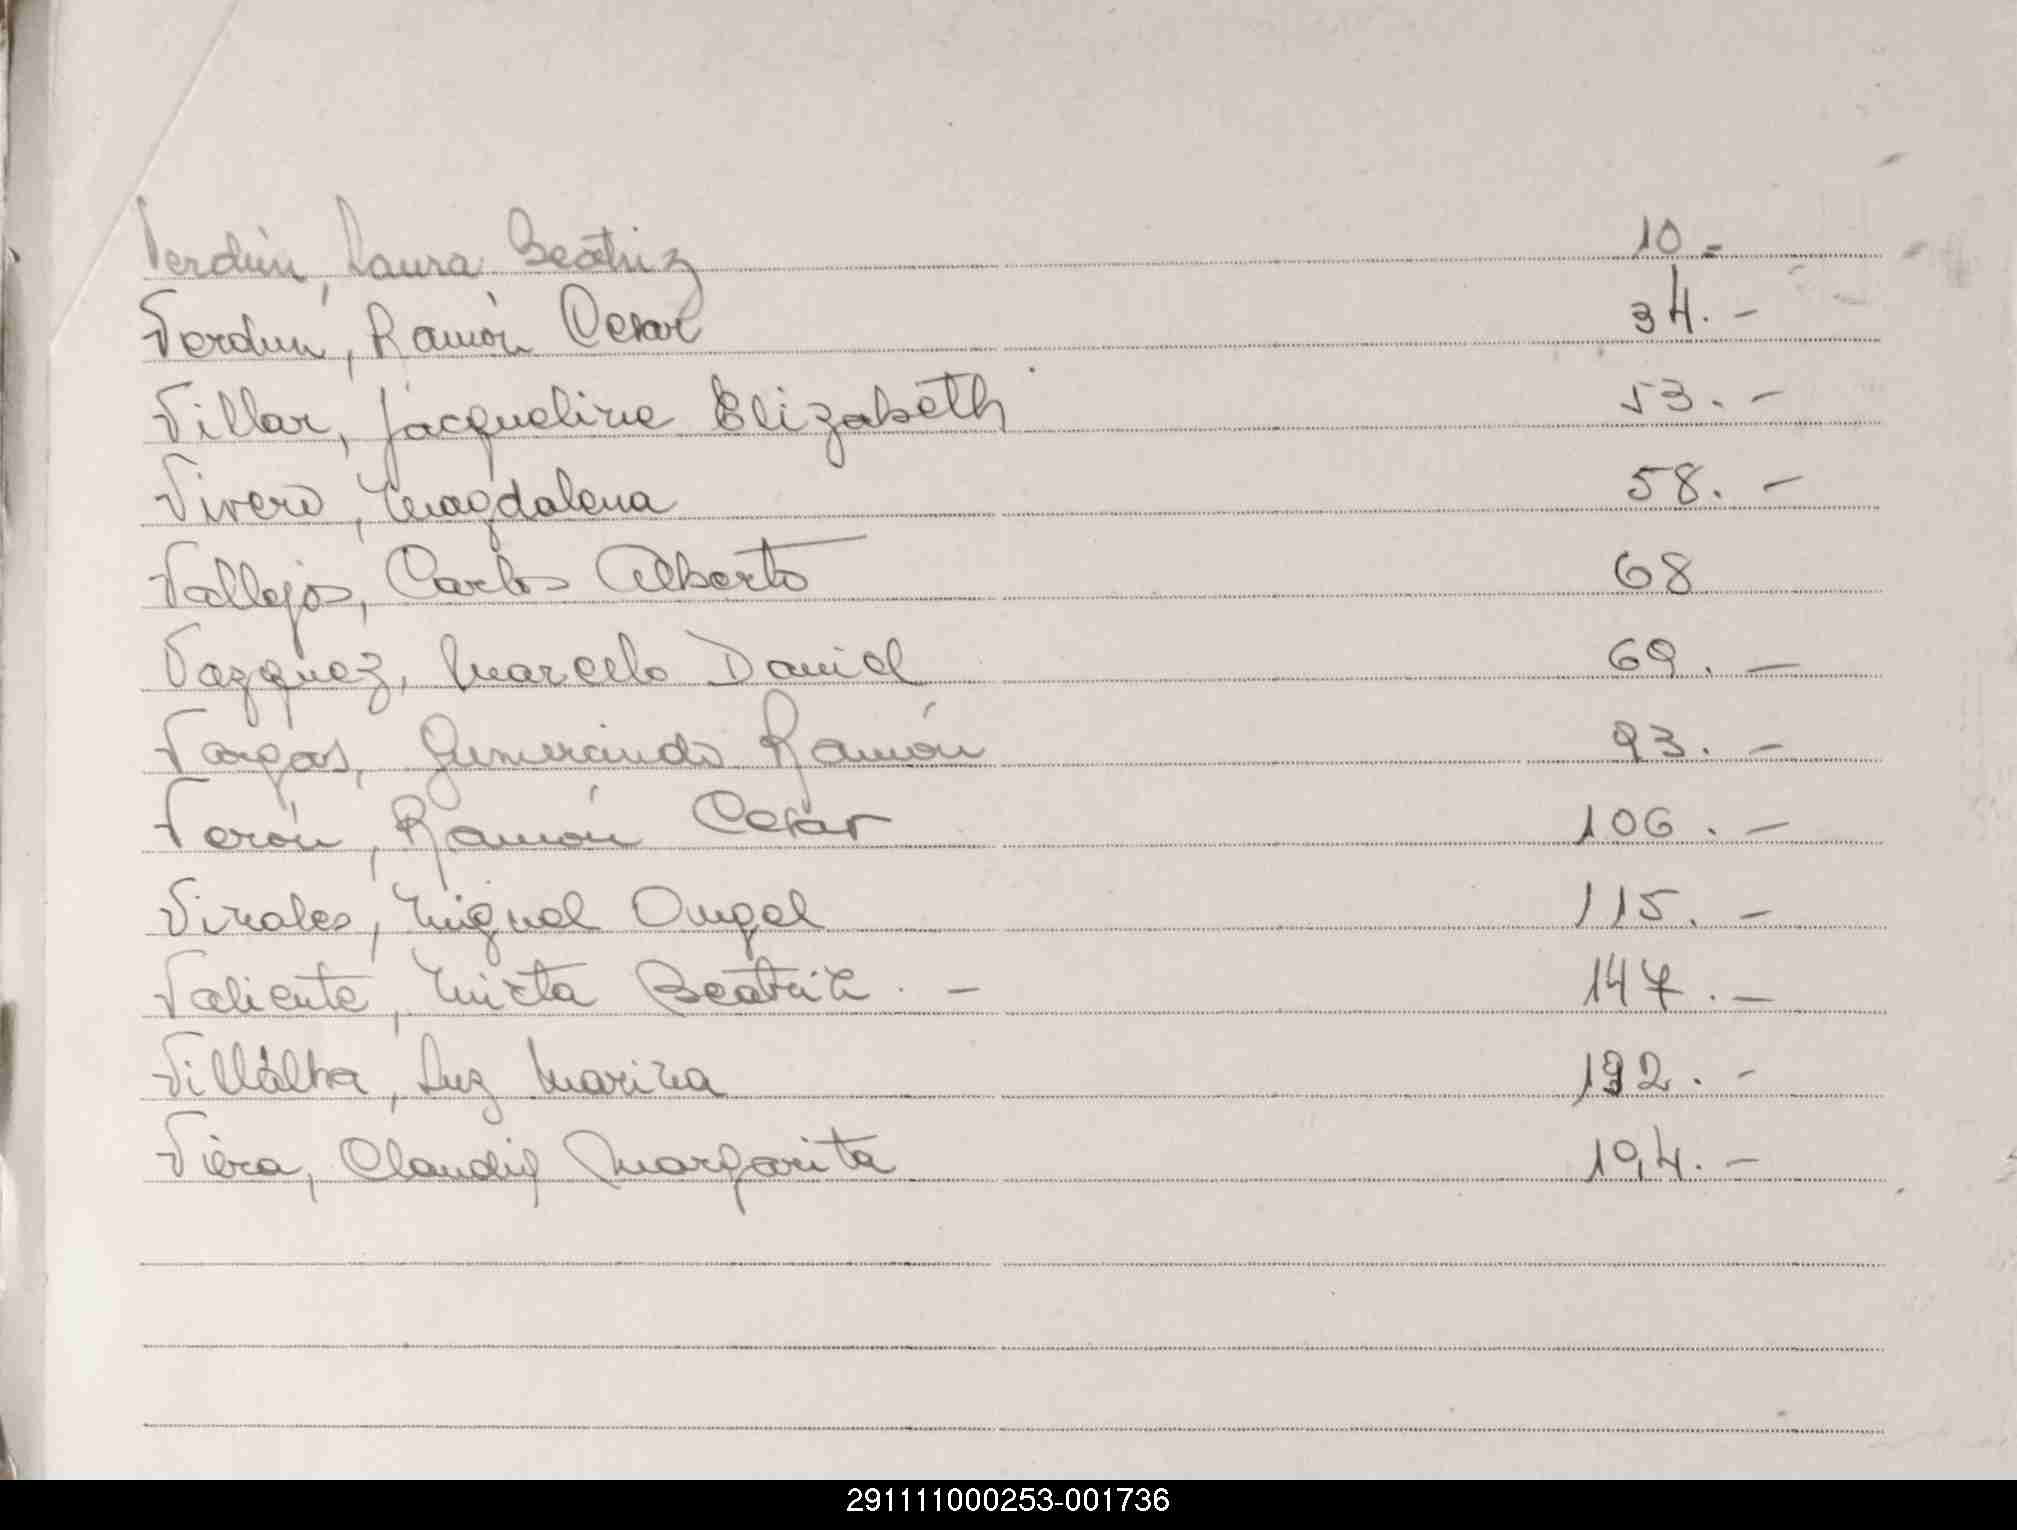 Verdún, Laura Beatriz 10.-
Verdun, Ramón Cesar 34.-
Villar, Jacqueline Elizabeth 53.-
Vivero, Magdalena 58.-
Vallejos, Carlos Alberto 68
Vazquez, Marcelo Daniel 69.-
Vargas, Gumercindo Ramón 93.-
Verón, Ramón Cesar 106.-
Virales, Miguel Angel 115.-
Valiente, Mirta Beatriz.- 147.-
Villalba, Luz Marina 192.-
Viera, Claudia Margarita 194.-
291111000253-001736